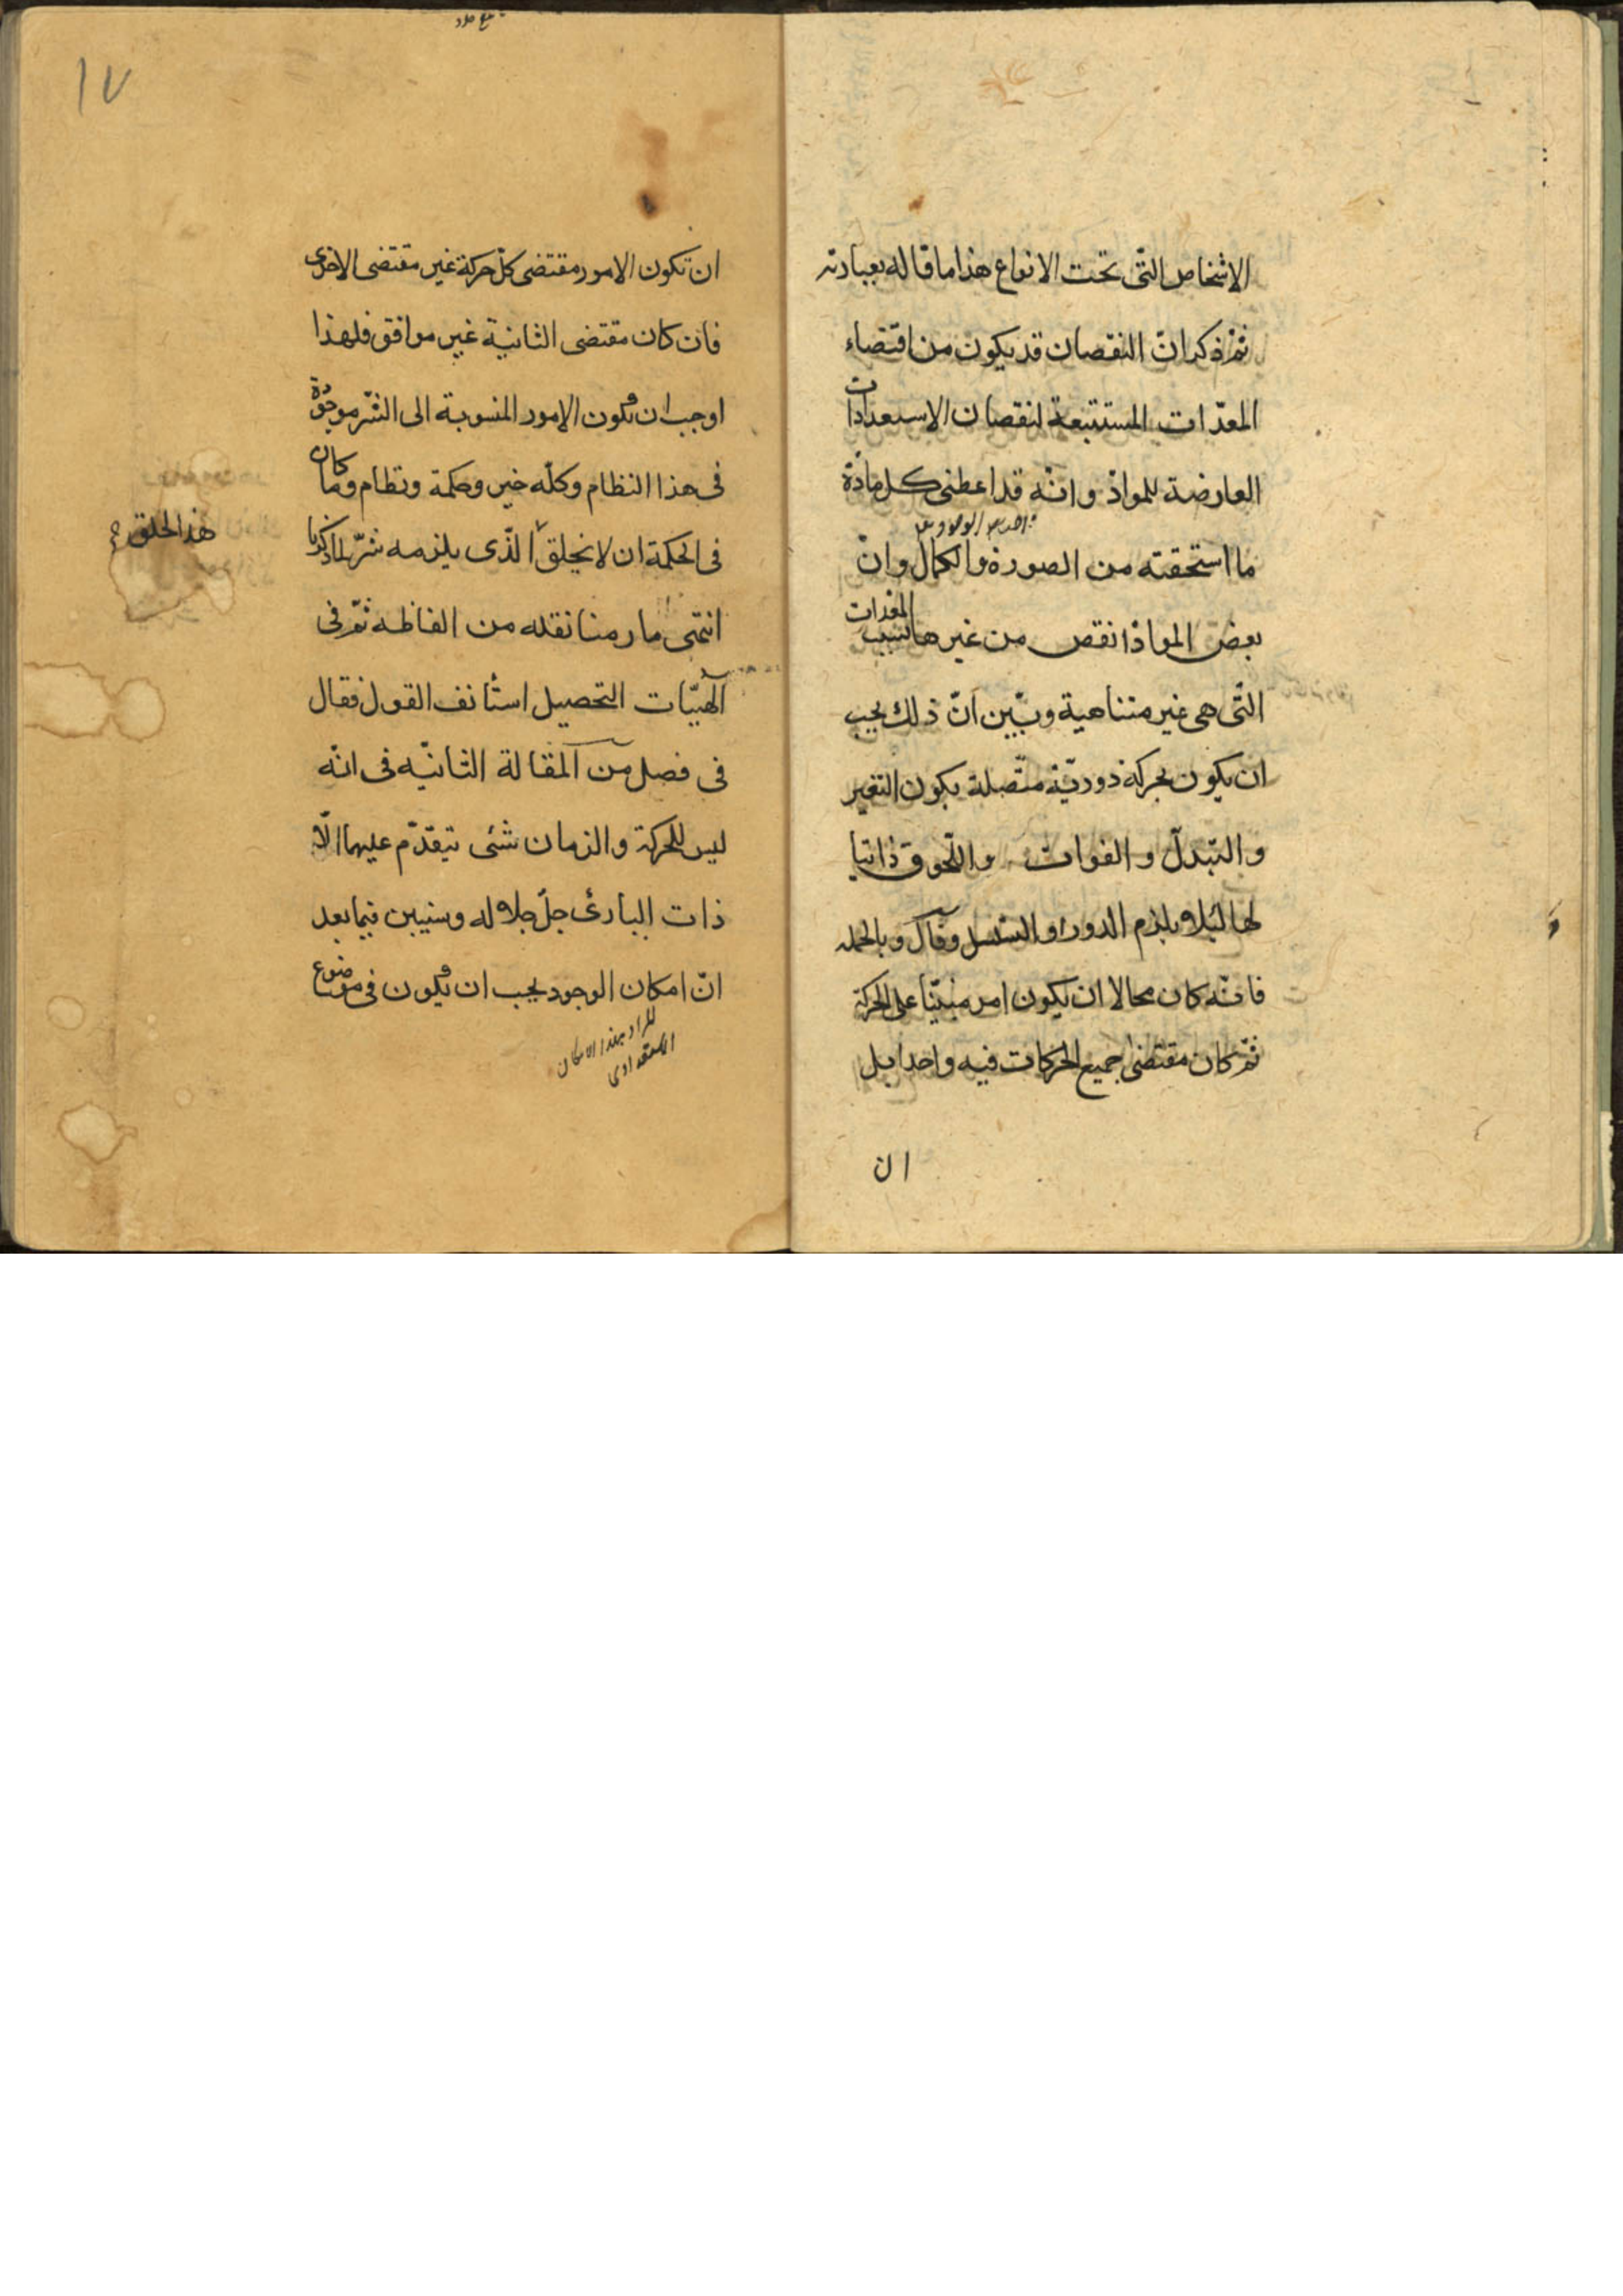 الاشخاص الّتى تحت الانواع هذا ما قاله بعبارته
ثم ذكر انّ النقصان قد يكون من اقتضاء
المعدّات المستتبعة لنقصان الاستعدادات
العارضة للموادّ وانّه قد اعطى كل مادّة
ما استحقته من الصورة والكمال وانّ
بعض الموادّ انقص من غيرها لسبب المعدات
الّتى هى غير متناهية وبيّن انّ ذلك يجب
ان يكون بحركة دوريّة متّصلة يكون التغير
والتبدلّ والفوات واللّحوق ذاتيا
لها لئلا يلزم الدور او التسلسل وقال وبالجمله
فانّه كان محالا ان يكون امر مبنيّا على الحركة
ثمّ كان مقتضى جميع الحركات فيه واحدا بل
ان
١٧
ان تكون الامور مقتضى كلّ حركة غير مقتضى الاخرى
فان كان مقتضى الثانية غير موافق فلهذا
اوجب ان يكون الامور المنسوبة الى الشّر موجودة
فى هذا النظام وكلّه خير وحكمة ونظام وما كان
فى الحكمة ان لا يخلق الّذى يلزمه شرّ لما ذكرنا
هذا الخلق
انتهى ما رمنا نقله من الفاظه ثمّ فى
آلهيّات التحصيل استأنف القول فقال
فى فصل من المقالة الثانيّه فى انّه
ليس للحركة والزمان شئ يتقدّم عليهما الّا
ذات البارئ جلّ جلاله وسنبين فيما بعد
انّ امكان الوجود يجب ان يكون فى موضوع
المراد بهذا الامكان
الاستعدادى